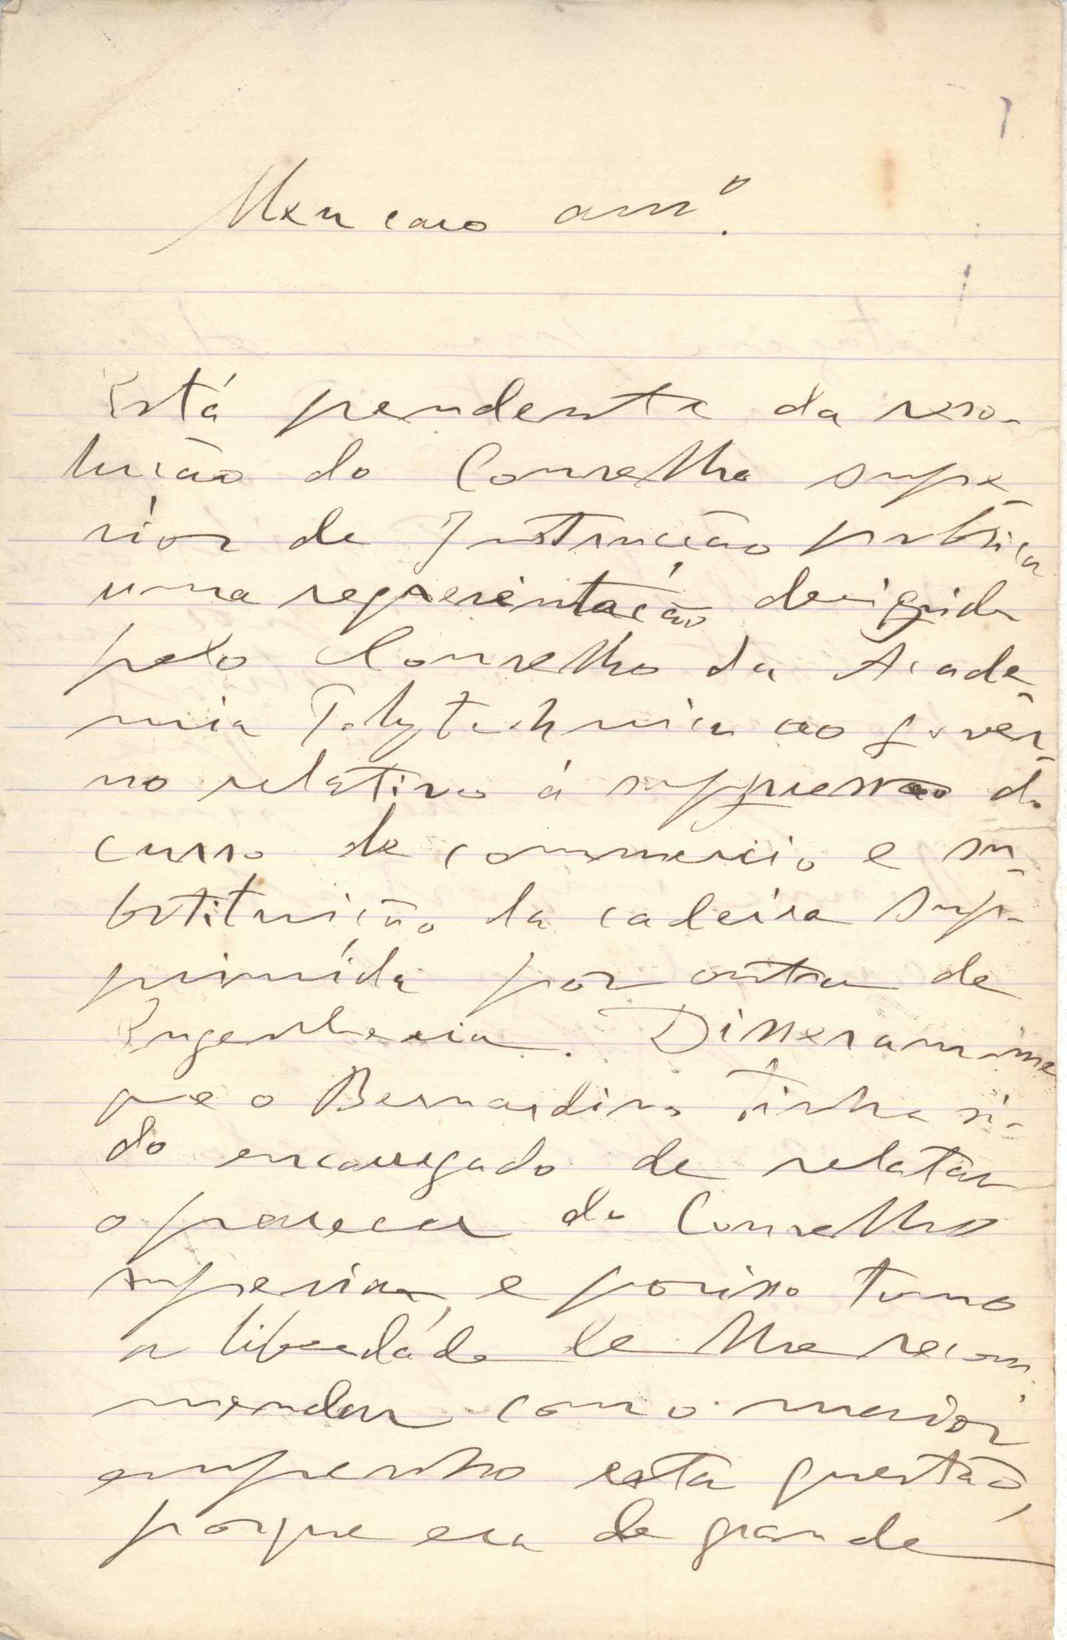 Meu caro amº.
Está pendente da reso-
lução do Conselho supe-
rior de Instrucção publica
uma representação derigida
pelo Conselho da Acade-
mia Polytechnica ao gover-
no relativo á suppressão do
curso de commercio e su-
bstituição da cadeira sup-
primida por outra de
Engenheria. Disseram-me
que o Bernardino tinha si-
do encarregado de relatar
o parecer do Conselho
superior, e porisso tomo
a liberdáde de lhe recom-
mendar com o maior
empenho esta questão,
porque era de grande